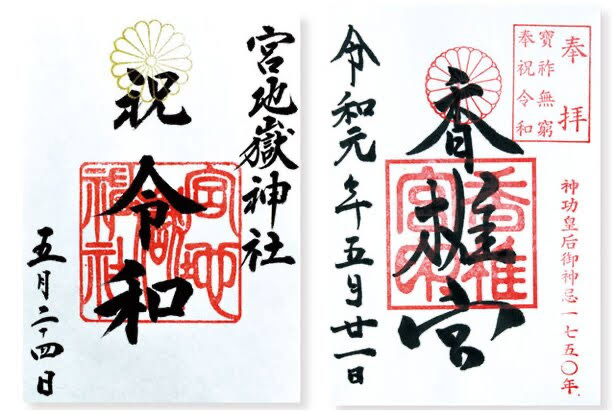 宮地嶽神社
祝令和
五月二十四日
宮地嶽神社
奉拝
寶祚無窮
奉祝令和
神功皇后御神忌一七五〇年
香椎宮
香椎宮印
令和元年五月廿一日